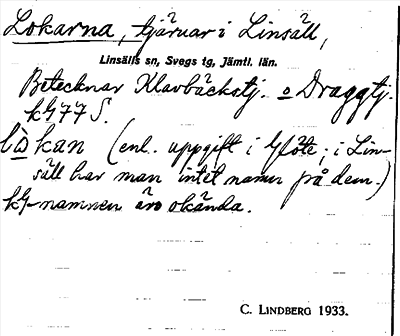 Lokarna, tjärnar i Linsäll,
Linsälls sn, Svegs tg, Jämtl. län.
Betecknar Klavbäckstj. o Draggtj.
kg 77 S.
lò̀kan (enl. uppgift i Glöte; i Lin-
säll har man intet namn på dem.)
kg-namnen äro okända.
C. LINDBERG 1933.